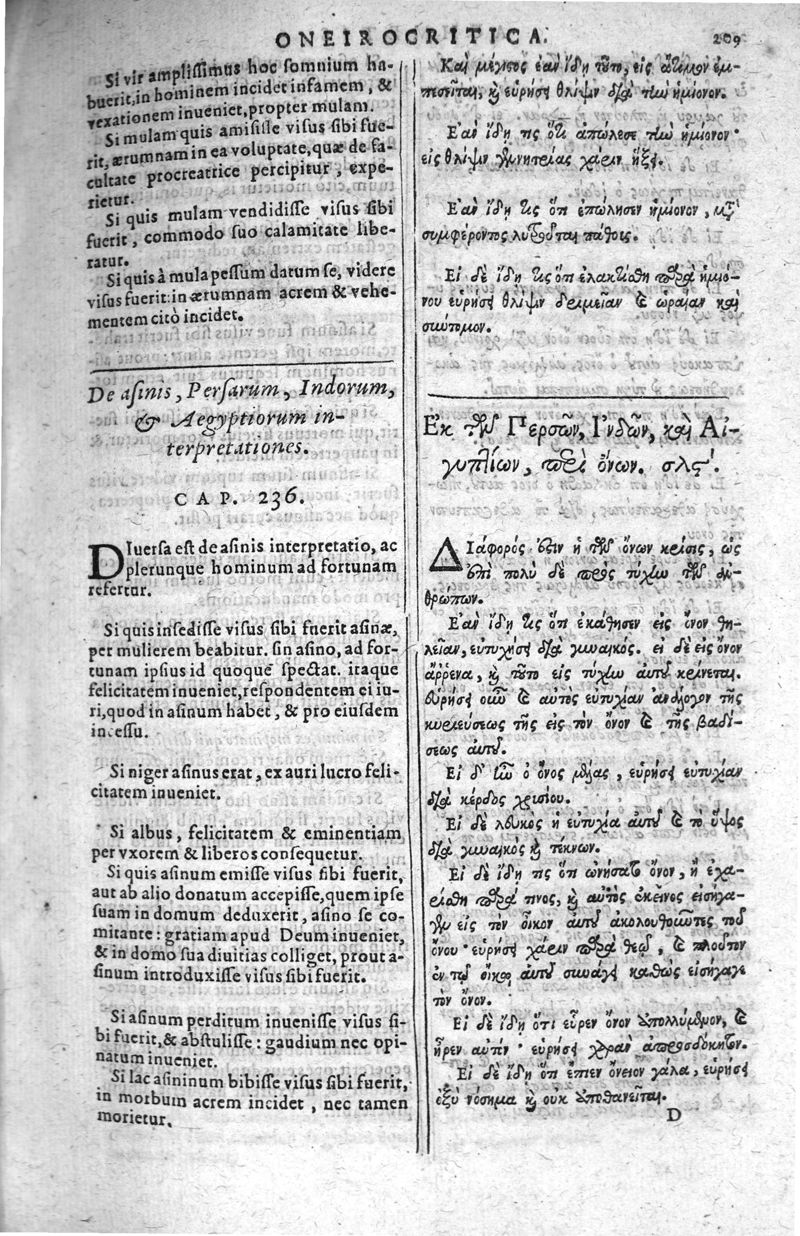 ONEIROCRITICA. 209
Si vir amplissimus hoc somnium ha-
buerit, in hominem incidet infamem, &
vexationem inueniet, propter mulam.
Si mulam quis amisisse visus sibi fue-
rit, ærumnam in ea voluptate, quæ de fa-
cultate procreatrice percipitur, expe-
rietur.
Si quis mulam vendidisse visus sibi
fuerit, commodo suo calamitate libe-
ratur.
Si quis à mula pessum datum se, videre
visus fuerit: in ærumnam acrem & vehe-
mentem citò incidet.
De asinis, Persarum, Indorum,
& Aegyptiorum in-
terpretationes.
CAP. 236.
DIuersa est de asinis interpretatio, ac
plerunque hominum ad fortunam
refertur.
Si quis insedisse visus sibi fuerit asinæ,
per mulierem beabitur. sin asino, ad for-
tunam ipsius id quoque spectat. itaque
felicitatem inueniet, respondentem ei iu-
ri, quod in asinum habet, & pro eiusdem
incessu.
Si niger asinus erat, ex auri lucro feli-
citatem inueniet.
Si albus, felicitatem & eminentiam
per vxorem & liberos consequetur.
Si quis asinum emisse visus sibi fuerit,
aut ab alio donatum accepisse, quem ipse
suam in domum deduxerit, asino se co-
mitante: gratiam apud Deum inueniet,
& in domo sua diuitias colliget, prout a-
sinum introduxisse visus sibi fuerit.
Si asinum perditum inuenisse visus si-
bi fuerit, & abstulisse: gaudium nec opi-
natum inueniet.
Si lac asininum bibisse visus sibi fuerit,
in morbum acrem incidet, nec tamen
morietur.
Καὶ μέγιστος ἐὰν ἴδῃ τοῦτο, εἰς ἄτιμον ἐμ-
πεσεῖται, καὶ εὑρήσει θλίψιν διὰ τὴν ἡμίονον.
Ἐὰν ἴδῃ τις ὅτι ἀπώλεσε τὴν ἡμίονον·
εἰς θλίψιν γεννητείας χάριν ἥξει.
Ἐὰν ἴδῃ τις ὅτι ἐπώλησεν ἡμίονον, μετὰ
συμφέροντος λυτροῦται πάθοις.
Εἰ δὲ ἴδῃ τις ὅτι ἐλακτίσθη παρὰ ἡμιό-
νου εὑρήσει θλίψιν δριμεῖαν καὶ ὡραίαν καὶ
σύντομον.
Ἐκ τῶν Περσῶν, Ἰνδῶν, καὶ Αἰ-
γυπτίων, περὶ ὄνων. σλϛʹ.
Διάφορός ἐστιν ἡ τῶν ὄνων κρίσις, ὡς
ἐπὶ πολὺ δὲ πρὸς τύχην τῶν ἀν-
θρώπων.
Ἐὰν ἴδῃ τις ὅτι ἐκάθησεν εἰς ὄνον θη-
λεῖαν, εὐτυχήσει διὰ γυναικός. εἰ δὲ εἰς ὄνον
ἄρρενα, καὶ τοῦτο εἰς τύχην αὐτοῦ κρίνεται.
εὑρήσει οὖν καὶ αὐτὸς εὐτυχίαν ἀνάλογον τῆς
κυριεύσεως τῆς εἰς τὸν ὄνον καὶ τῆς βαδί-
σεως αὐτοῦ.
Εἰ δ' ἦν ὁ ὄνος μέλας, εὑρήσει εὐτυχίαν
διὰ κέρδος χρυσίου.
Εἰ δὲ λευκὸς ἡ εὐτυχία αὐτοῦ καὶ τὸ ὕψος
διὰ γυναικὸς καὶ τέκνων.
Εἰ δὲ ἴδῃ τις ὅτι ὠνήσατο ὄνον, ἢ ἐχα-
ρίσθη παρά τινος, καὶ αὐτὸς ἐκεῖνος εἰσήγα-
γεν εἰς τὸν οἶκον αὐτοῦ ἀκολουθοῦντος τοῦ
ὄνου· εὑρήσει χάριν παρὰ θεῷ, καὶ πλοῦτον
ἐν τῷ οἴκῳ αὐτοῦ συνάγει καθὼς εἰσήγαγε
τὸν ὄνον.
Εἰ δὲ ἴδῃ ὅτι εὗρεν ὄνον ἀπολλύμενον, καὶ
ἦρεν αὐτήν· εὑρήσει χαρὰν ἀπροσδόκητον.
Εἰ δὲ ἴδῃ ὅτι ἔπιεν ὄνειον γάλα, εὑρήσει
ὀξὺ νόσημα καὶ οὐκ ἀποθανεῖται.
D